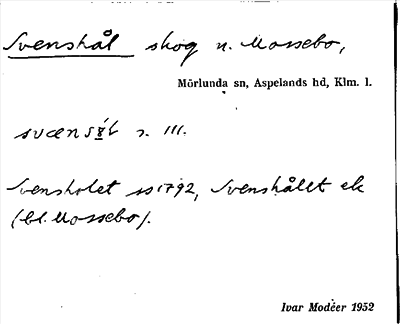 Svenshål skog n. Mossebo,
Mörlunda sn, Aspelands hd, Klm. l.
s. III.
Svensholet ss 1792, Svenshålet ek
(bl. Mossebo).
Ivar Modéer 1952